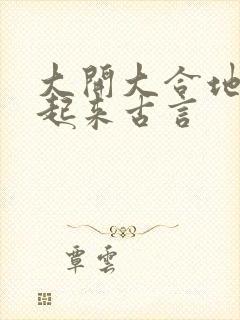 大開大合地
起来古言
覃雲